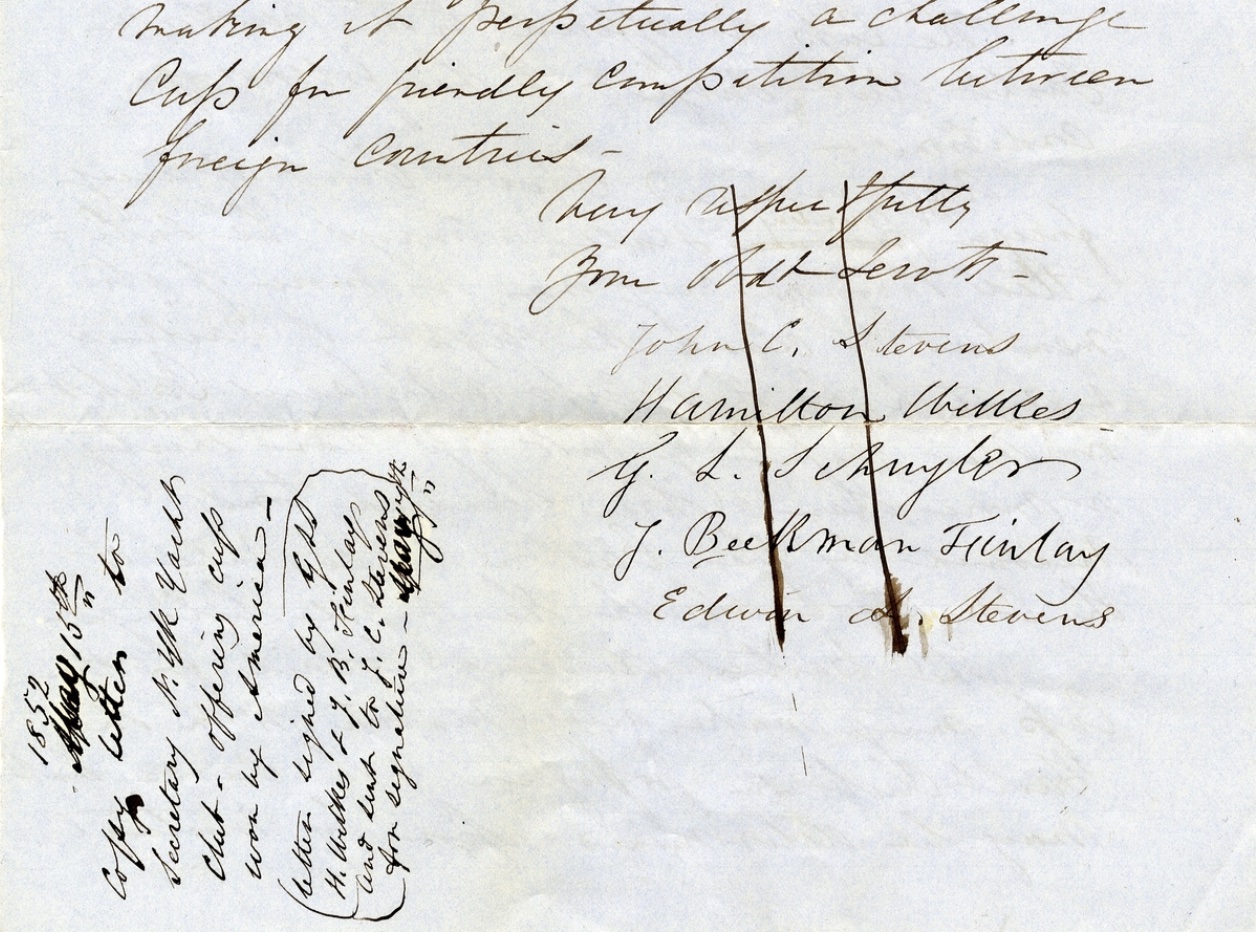 making it perpetually a challenge
Cup for friendly competition between
foreign Countries -
Very respectfully
Your Obdt Servts -
John C. Stevens
Hamilton Wilkes
G. L. Schuyler
J. Beekman Finlay
Edwin A. Stevens
1852
May 15th
Copy letter to
Secretary N. Yk Yacht
Club - offering cup
won by America -
letter signed by GLS
H. Wilkes & J. B. Finlay
and sent to J. C. Stevens
for signature - May